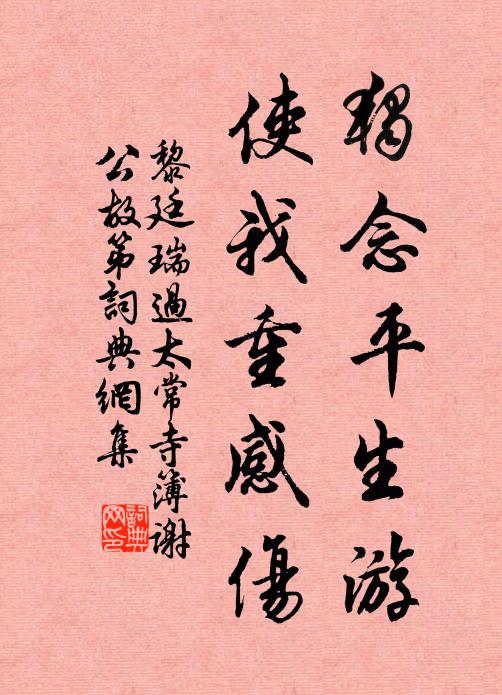 獨念平生游
使我重感傷
黎廷瑞過太常寺簿謝
公故第詞典網集
詞典
网印